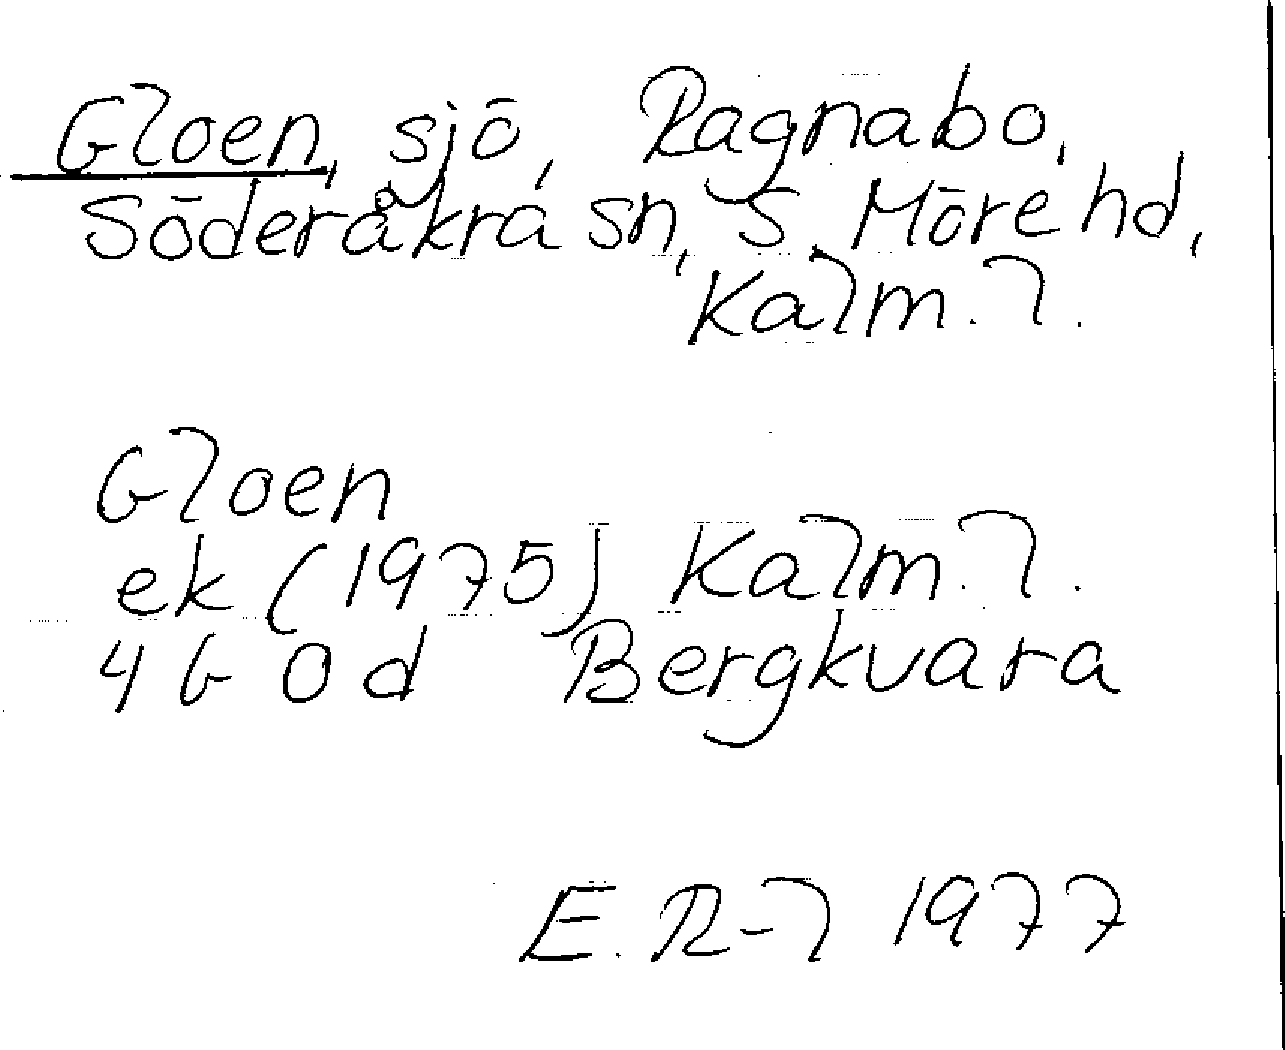 Gloen, sjö, Ragnabo,
Söderåkra sn, S. Möre hd,
Kalm. l.
Gloen
ek (1975) Kalm. l.
4 G 0 d Bergkvara
E. R-l 1977